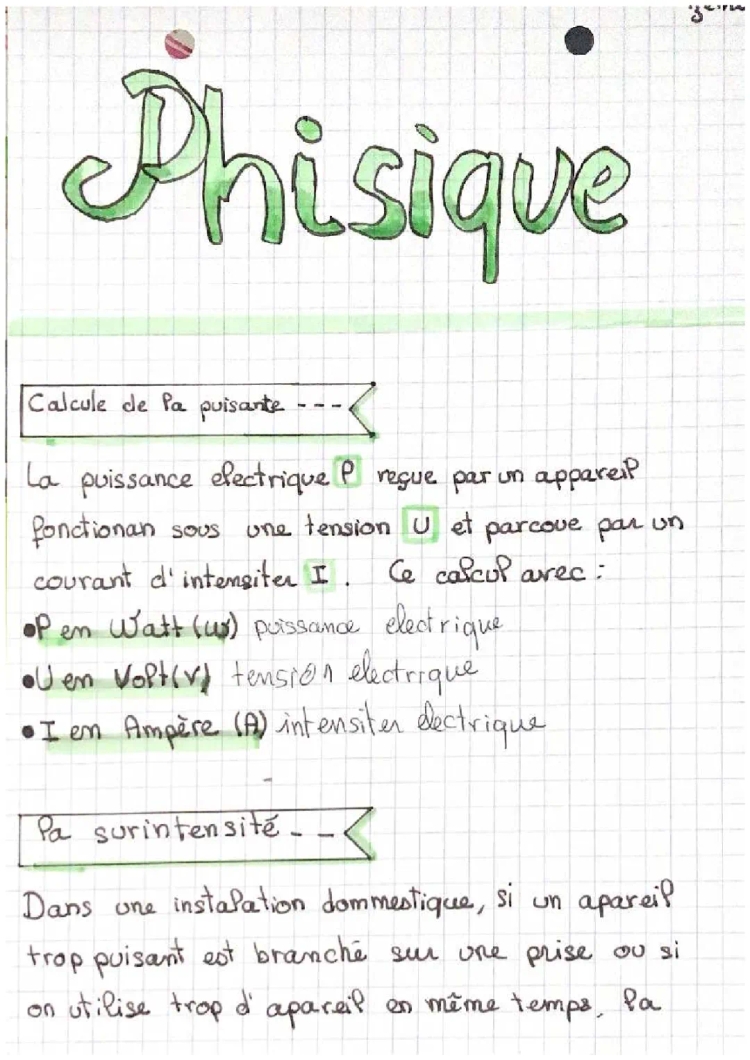 Phisique
Calcule de la puisante ---
La puissance electrique P reçue par un appareil
fonctionan sous une tension U et parcoue par un
courant d'intensiter I. Ce calcul avec :
•P en Watt (w) puissance electrique
•U en Volt(V) tension electrique
•I en Ampère (A) intensiter electrique
la surintensité - -
Dans une installation dommestique, si un apareil
trop puisant est branché sur une prise ou si
on utilise trop d'apareil en même temps, la